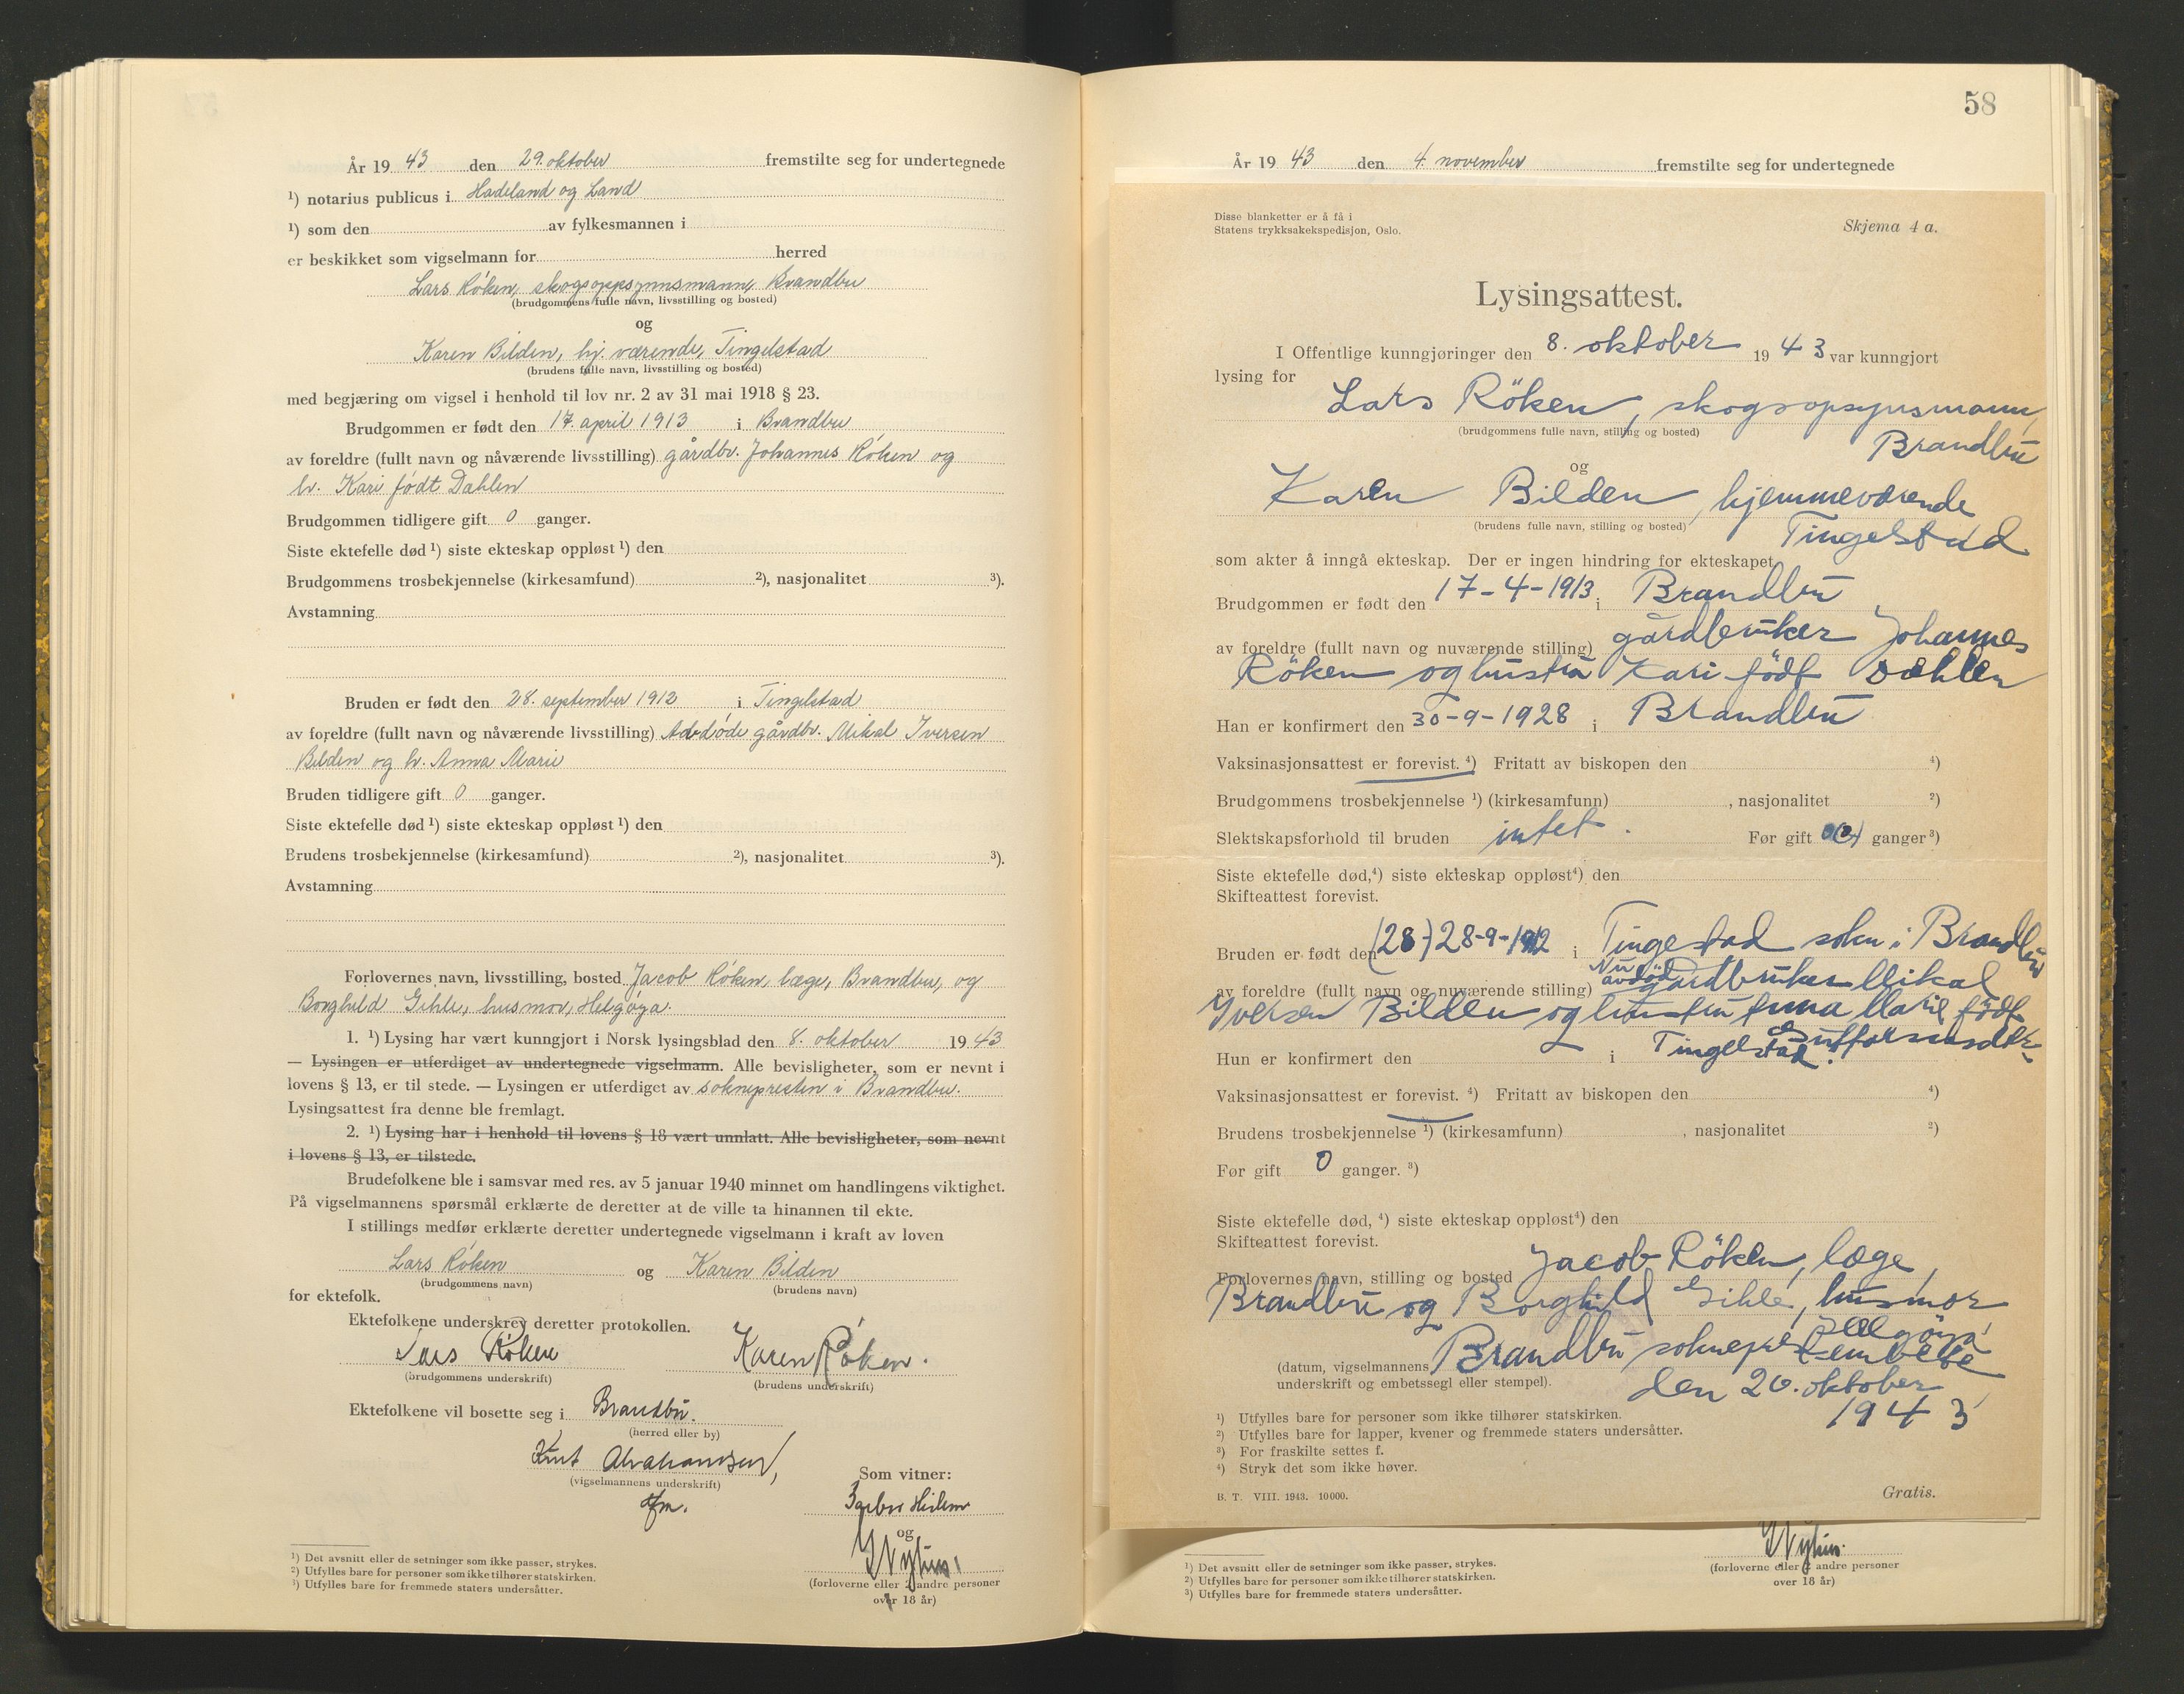 År 19 43 den 29. oktober fremstilte seg for undertegnede
¹) notarius publicus i Hadeland og Land
¹) som den av fylkesmannen i
er beskikket som vigselmann for herred
Lars Röken, skogsoppsynnsmann, Brandbu
(brudgommens fulle navn, livsstilling og bosted)
og
Karen Bilden, hj. værende, Tingelstad
(brudens fulle navn, livsstilling og bosted)
med begjæring om vigsel i henhold til lov nr. 2 av 31 mai 1918 § 23.
Brudgommen er født den 17. april 1913 i Brandbu
av foreldre (fullt navn og nåværende livsstilling) gårdbr. Johannes Röken og
h. Kari födt Dahlen
Brudgommen tidligere gift 0 ganger.
Siste ektefelle død ¹) siste ekteskap oppløst ¹) den
Brudgommens trosbekjennelse (kirkesamfund) ²), nasjonalitet ³).
Avstamning
Bruden er født den 28. september 1912 i Tingelstad
av foreldre (fullt navn og nåværende livsstilling) Avdöde gårdbr. Mikal Iversen
Bilden og h. Anna Marie
Bruden tidligere gift 0 ganger.
Siste ektefelle død ¹) siste ekteskap oppløst ¹) den
Brudens trosbekjennelse (kirkesamfund) ²), nasjonalitet ³).
Avstamning
Forlovernes navn, livsstilling, bosted Jacob Röken, læge, Brandbu, og
Borghild Gihle, husmor, Helgöya.
1. ¹) Lysing har vært kunngjort i Norsk lysingsblad den 8. oktober 19 43
— Lysingen er utferdiget av undertegnede vigselmann. Alle bevisligheter, som er nevnt i
lovens § 13, er til stede. — Lysingen er utferdiget av sokneprestin i Brandbu.
Lysingsattest fra denne ble fremlagt.
2. ¹) Lysing har i henhold til lovens § 18 vært unnlatt. Alle bevisligheter, som nevnt
i lovens § 13, er tilstede.
Brudefolkene ble i samsvar med res. av 5 januar 1940 minnet om handlingens viktighet.
På vigselmannens spørsmål erklærte de deretter at de ville ta hinannen til ekte.
I stillings medfør erklærte deretter undertegnede vigselmann i kraft av loven
Lars Röken og Karen Bilden
(brudgommens navn) (brudens navn)
for ektefolk.
Ektefolkene underskrev deretter protokollen.
Lars Röken Karen Röken.
(brudgommens underskrift) (brudens underskrift)
Ektefolkene vil bosette seg i Brandbu.
(herred eller by)
Knut Abrahamsen,
(vigselmannens underskrift)
Som vitner:
og
(forloverne eller 2 andre personer
over 18 år)
¹) Det avsnitt eller de setninger som ikke passer, strykes.
²) Utfylles bare for personer som ikke tilhører statskirken.
³) Utfylles bare for fremmede staters undersåtter.
58
År 19 43 den 4. november fremstilte seg for undertegnede
Disse blanketter er å få i
Statens trykksakekspedisjon, Oslo.
Skjema 4 a.
Lysingsattest.
I Offentlige kunngjøringer den 8. oktober 19 43 var kunngjort
lysing for
Lars Röken, skogsopsynsmann,
(brudgommens fulle navn, stilling og bosted)
Brandbu
og
Karen Bilden, hjemmeværende
(brudens fulle navn, stilling og bosted)
Tingelstad
som akter å inngå ekteskap. Der er ingen hindring for ekteskapet
Brudgommen er født den 17-4-1913 i Brandbu
av foreldre (fullt navn og nuværende stilling) gårdbruker Johannes
Röken og hustru Kari födt Dahlen
Han er konfirmert den 30-9-1928 i Brandbu
Vaksinasjonsattest er forevist. ⁴) Fritatt av biskopen den ⁴)
Brudgommens trosbekjennelse ¹) (kirkesamfunn) , nasjonalitet ²)
Slektskapsforhold til bruden intet. Før gift 0 ganger ³)
Siste ektefelle død,⁴) siste ekteskap oppløst⁴) den
Skifteattest forevist.
Bruden er født den (28-) 28-9-1912 i Tingestad sokn i Brandbu
av foreldre (fullt navn og nuværende stilling) Nu avdöd gardbruker Mikal
Iversen Bilden og hustru Anna Marie födt
Hun er konfirmert den i Tingelstad.
Vaksinasjonsattest er forevist. ⁴) Fritatt av biskopen den ⁴)
Brudens trosbekjennelse ¹) (kirkesamfunn) , nasjonalitet ²)
Før gift 0 ganger. ³)
Siste ektefelle død, ⁴) siste ekteskap oppløst⁴) den
Skifteattest forevist.
Forlovernes navn, stilling og bosted Jacob Röken, læge,
Brandbu og Borghild Gihle, husmor
Helgöya
(datum, vigselmannens Brandbu sokneprestembete
underskrift og embetssegl eller stempel). den 20. oktober
1943
¹) Utfylles bare for personer som ikke tilhører statskirken.
²) Utfylles bare for lapper, kvener og fremmede staters undersåtter.
³) For fraskilte settes f.
⁴) Stryk det som ikke høver.
B. T. VIII. 1943. 10000.
Gratis.
¹) Det avsnitt eller de setninger som ikke passer, strykes.
²) Utfylles bare for personer som ikke tilhører statskirken.
³) Utfylles bare for fremmede staters undersåtter.
(forloverne eller 2 andre personer
over 18 år)